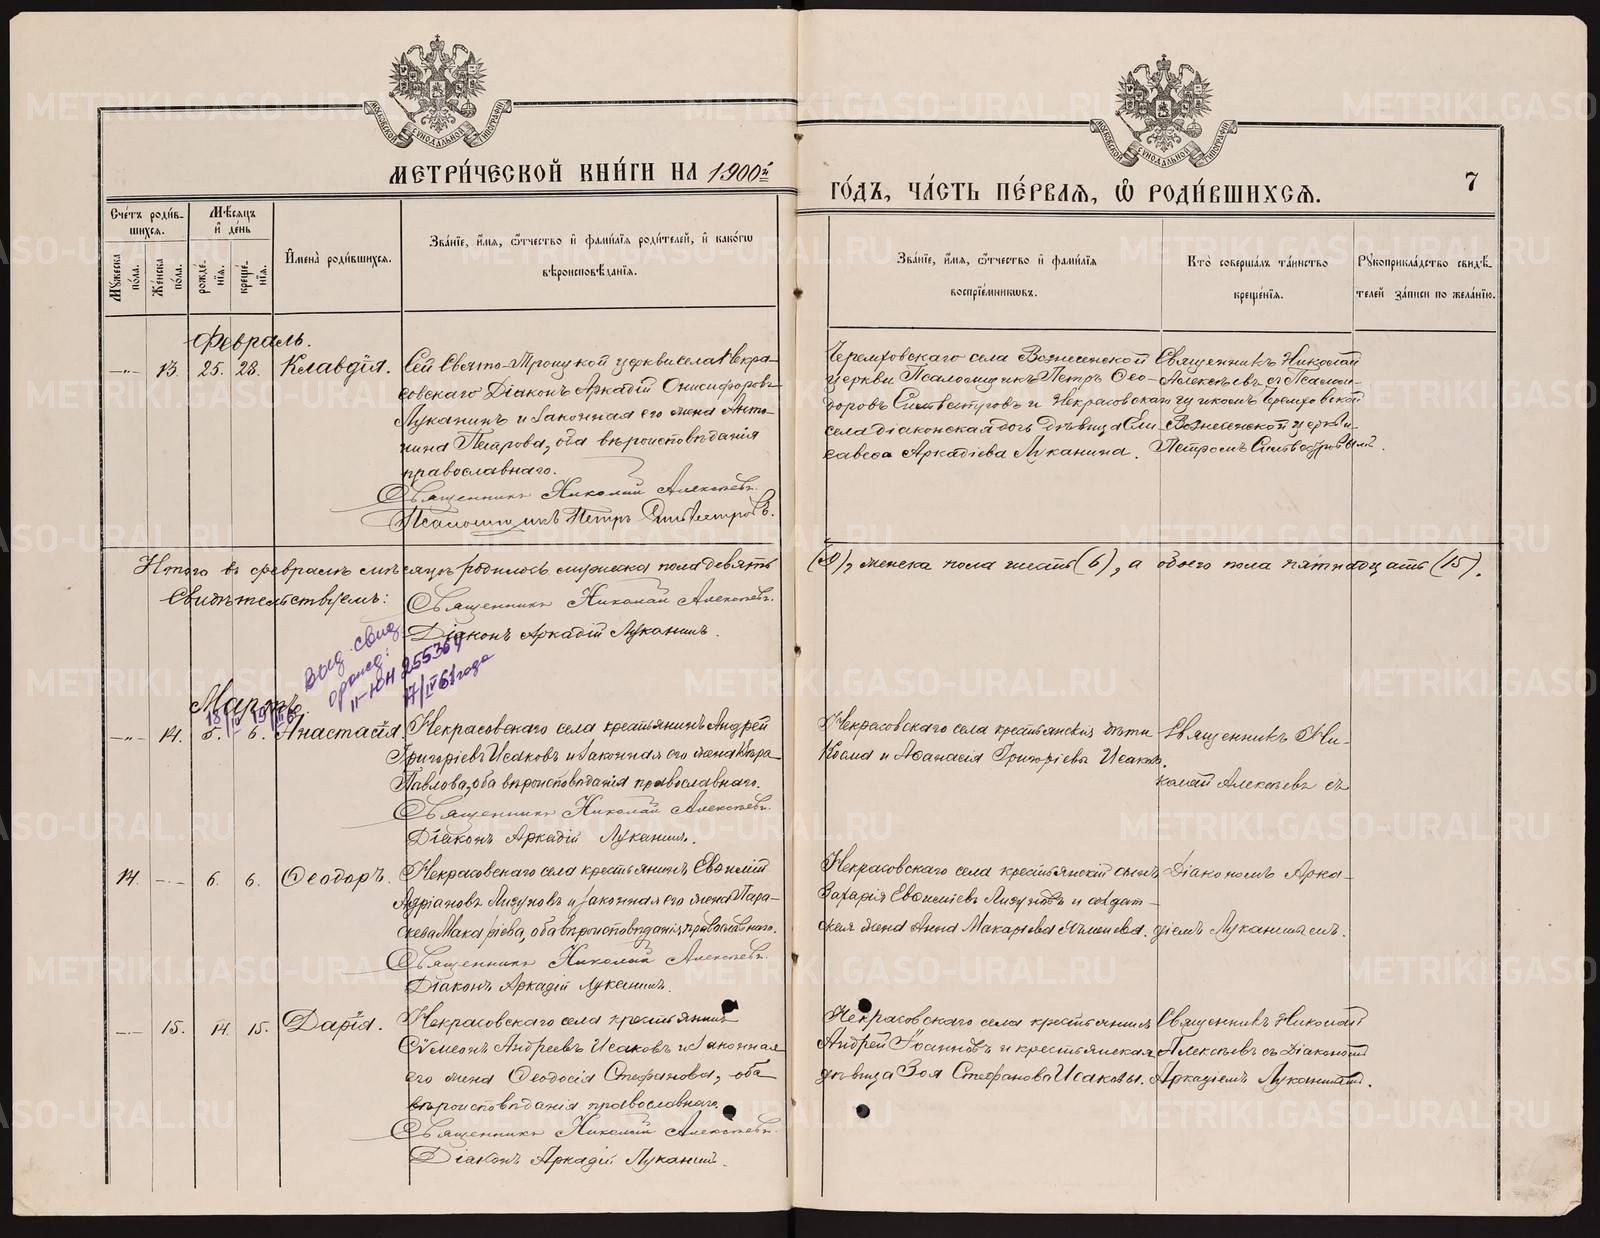 МОСКОВСКОЙ СѴНОДАЛЬНОЙ ТИПОГРАФІИ
МОСКОВСКОЙ СѴНОДАЛЬНОЙ ТИПОГРАФІИ
МЕТРИ́ЧЕСКОЙ КНИ́ГИ НА 1900й
ГО́ДЪ, ЧА́СТЬ ПЕ́РВАѦ, Ѽ РОДИ́ВШИХСѦ.
7
Сче́тъ роди́в-
шихсѧ.
Мꙋжеска по́ла.
Же́нска по́ла.
Мѣ́сѧцъ и де́нь
рожде́-нїѧ.
креще́-нїѧ.
Имена̀ роди́вшихсѧ.
Зва́нїе, и́мѧ, ѻ҆́тчество и фами́лїѧ роди́телей, и како́гѡ
вѣроисповѣ́данїѧ.
Зва́нїе, и́мѧ, ѻ҆́тчество и фами́лїѧ
воспрїе́мникѡвъ.
Кто̀ соверша́лъ та́инство
креще́нїѧ.
Рꙋкоприкла́дство свидѣ́-
телей за́писи по жела́нїю.
Февраль.
13. 25. 28. Клавдія.
Сей Свято-Троицкой церкви села Некра-
совскаго Діаконъ Аркадій Онисифоровъ
Луканинъ и законная его жена Анто-
нина Петрова, оба вѣроисповѣданія
православнаго.
Священникъ Николай Алексѣевъ.
Псаломщикъ Петръ Сильвестровъ.
Черемховскаго села Вознесенской
церкви Псаломщикъ Петръ Ѳео-
доровъ Сильвестровъ и Некрасовскаго
села діаконская дочь дѣвица Ели-
савета Аркадіева Луканина.
Священникъ Николай
Алексѣевъ съ Псалом-
щикомъ Черемховской
Вознесенской церкви
Петромъ Сильвестровымъ.
Итого въ февралѣ мѣсяцѣ родилось мужеска пола девять
(9), женска пола шесть (6), а обоего пола пятнадцать (15).
Свидѣтельствуемъ:
Священникъ Николай Алексѣевъ.
Діаконъ Аркадій Луканинъ.
Выд. свид.
II-ЮН 255364
17/IV 61 года
Мартъ.
18/III 19/III
14. 5. 6. Анастасія
Некрасовскаго села крестьянинъ Андрей
Григоріевъ Исаковъ и законная его жена Вѣра
Павлова, оба вѣроисповѣданія православнаго.
Священникъ Николай Алексѣевъ.
Діаконъ Аркадій Луканинъ.
Некрасовскаго села крестьянскія дѣти
Косма и Аѳанасія Григоріевы Исаковы.
Священникъ Ни-
колай Алексѣевъ съ
14. 6. 6. Ѳеодоръ.
Некрасовскаго села крестьянинъ Евѳимій
Адріановъ Лизуновъ и законная его жена Пара-
скева Макаріева, оба вѣроисповѣданія православнаго.
Священникъ Николай Алексѣевъ.
Діаконъ Аркадій Луканинъ.
Некрасовскаго села крестьянскій сынъ
Захарія Евѳиміевъ Лизуновъ и солдат-
ская жена Анна Макаріева
Діакономъ Арка-
діемъ Луканинымъ.
15. 14. 15. Дарія.
Некрасовскаго села крестьянинъ
Сѵмеонъ Андреевъ Исаковъ и законная
его жена Ѳеодосія Стефанова, оба
вѣроисповѣданія православнаго.
Священникъ Николай Алексѣевъ.
Діаконъ Аркадій Луканинъ.
Некрасовскаго села крестьянинъ
Андрей Іоанновъ и крестьянская
дѣвица Зоя Стефанова Исаковы.
Священникъ Николай
Алексѣевъ съ Діакономъ
Аркадіемъ Луканинымъ.